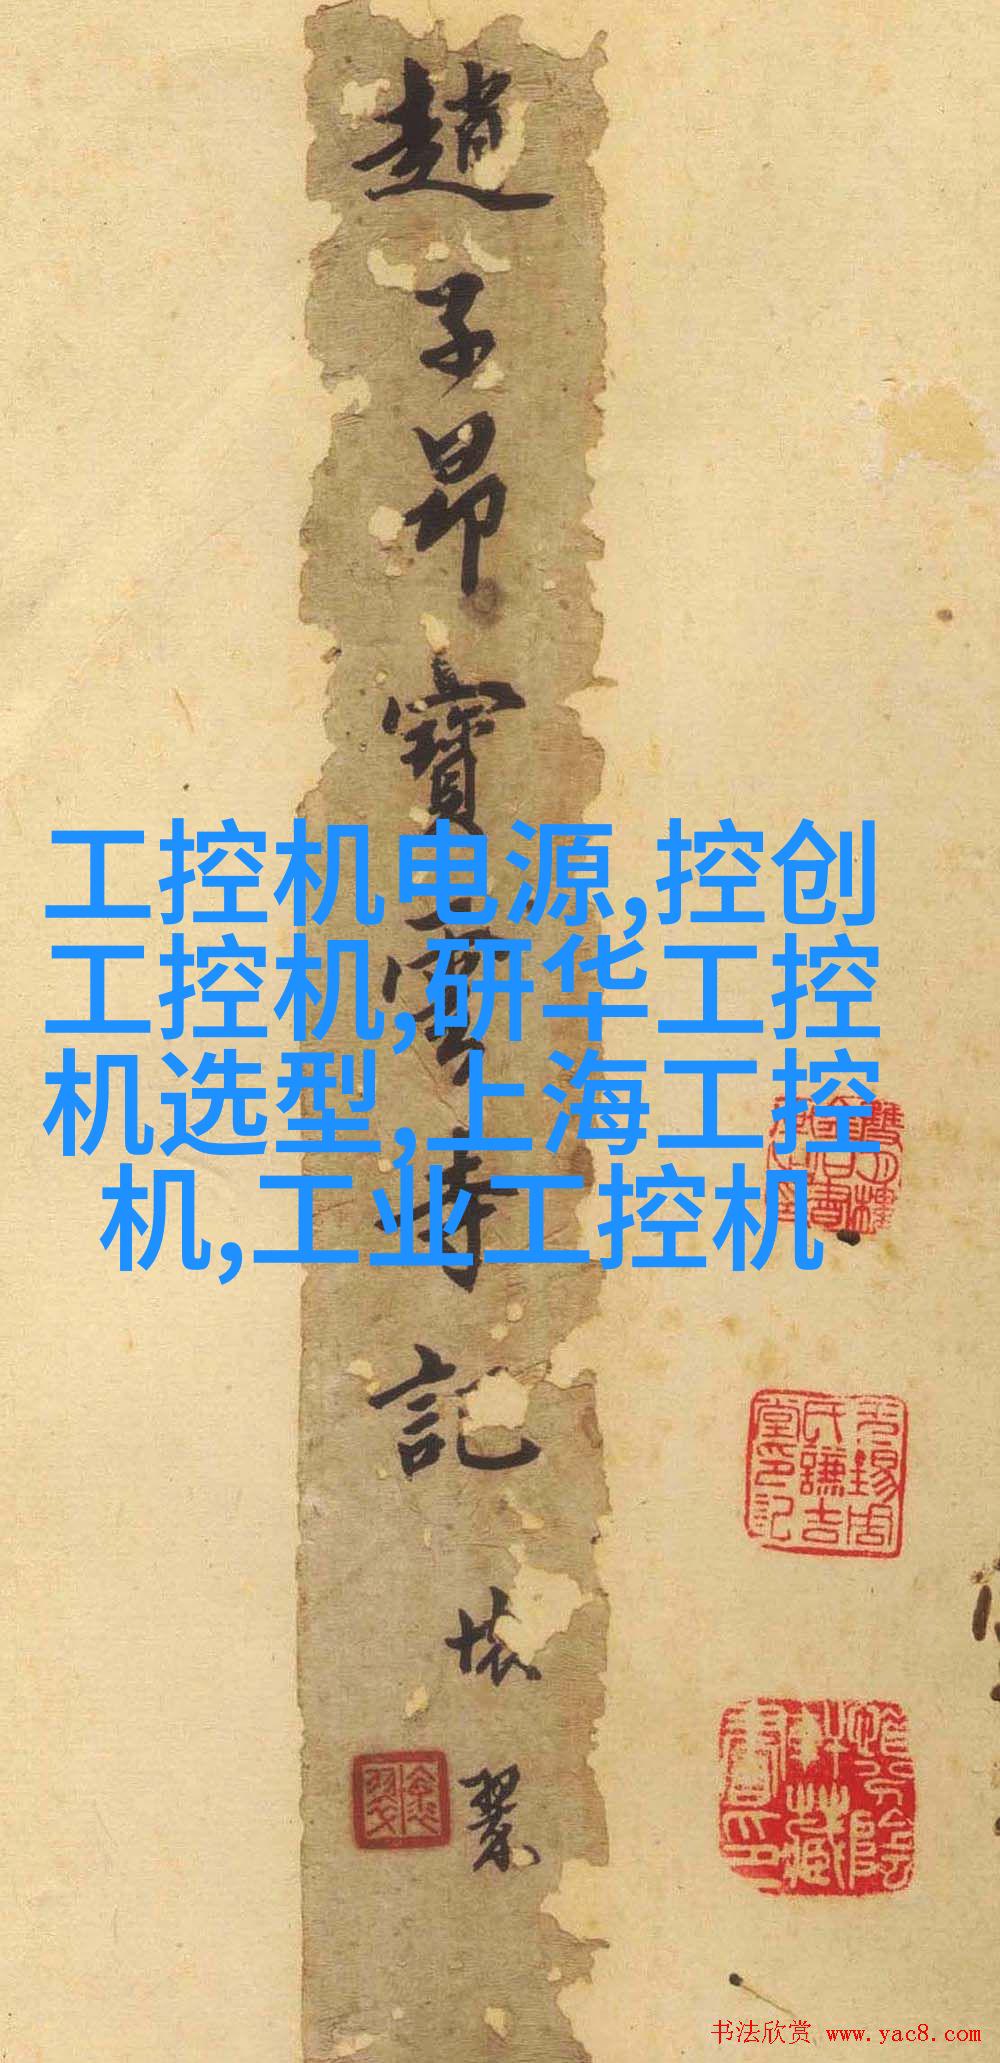 趙子昂寶雲寺記
工控机电源,控创
工控机,研华工控
机选型,上海工控
机,工业工控机
无锡周
氏謙吉
堂印記
书法欣赏 www.yac8.com